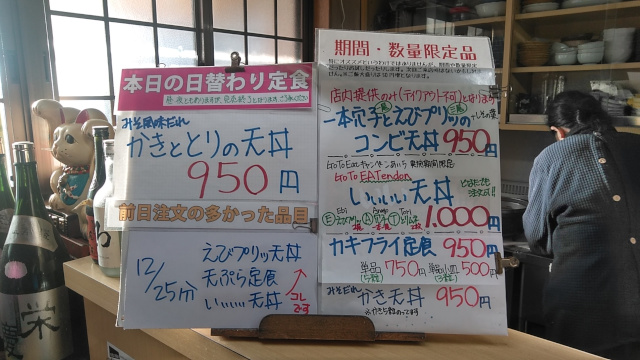 本日の日替わり定食
みそ風味だれ
かきととりの天丼
950円
前日注文の多かった品目
12/25分
えびプリッ天丼
天ぷら定食
いいいい天丼
コレです
期間・数量限定品
店内提供のみ(テイクアウト不可)となります
一本穴子とえびプリッの
コンビ天丼 950円
GoToEatキャンペーンあいち
GoTo EATendon
いいいい天丼
1,000円
カキフライ定食 950円
単品 750円
500円
みそだれ
かき天丼 950円
栄